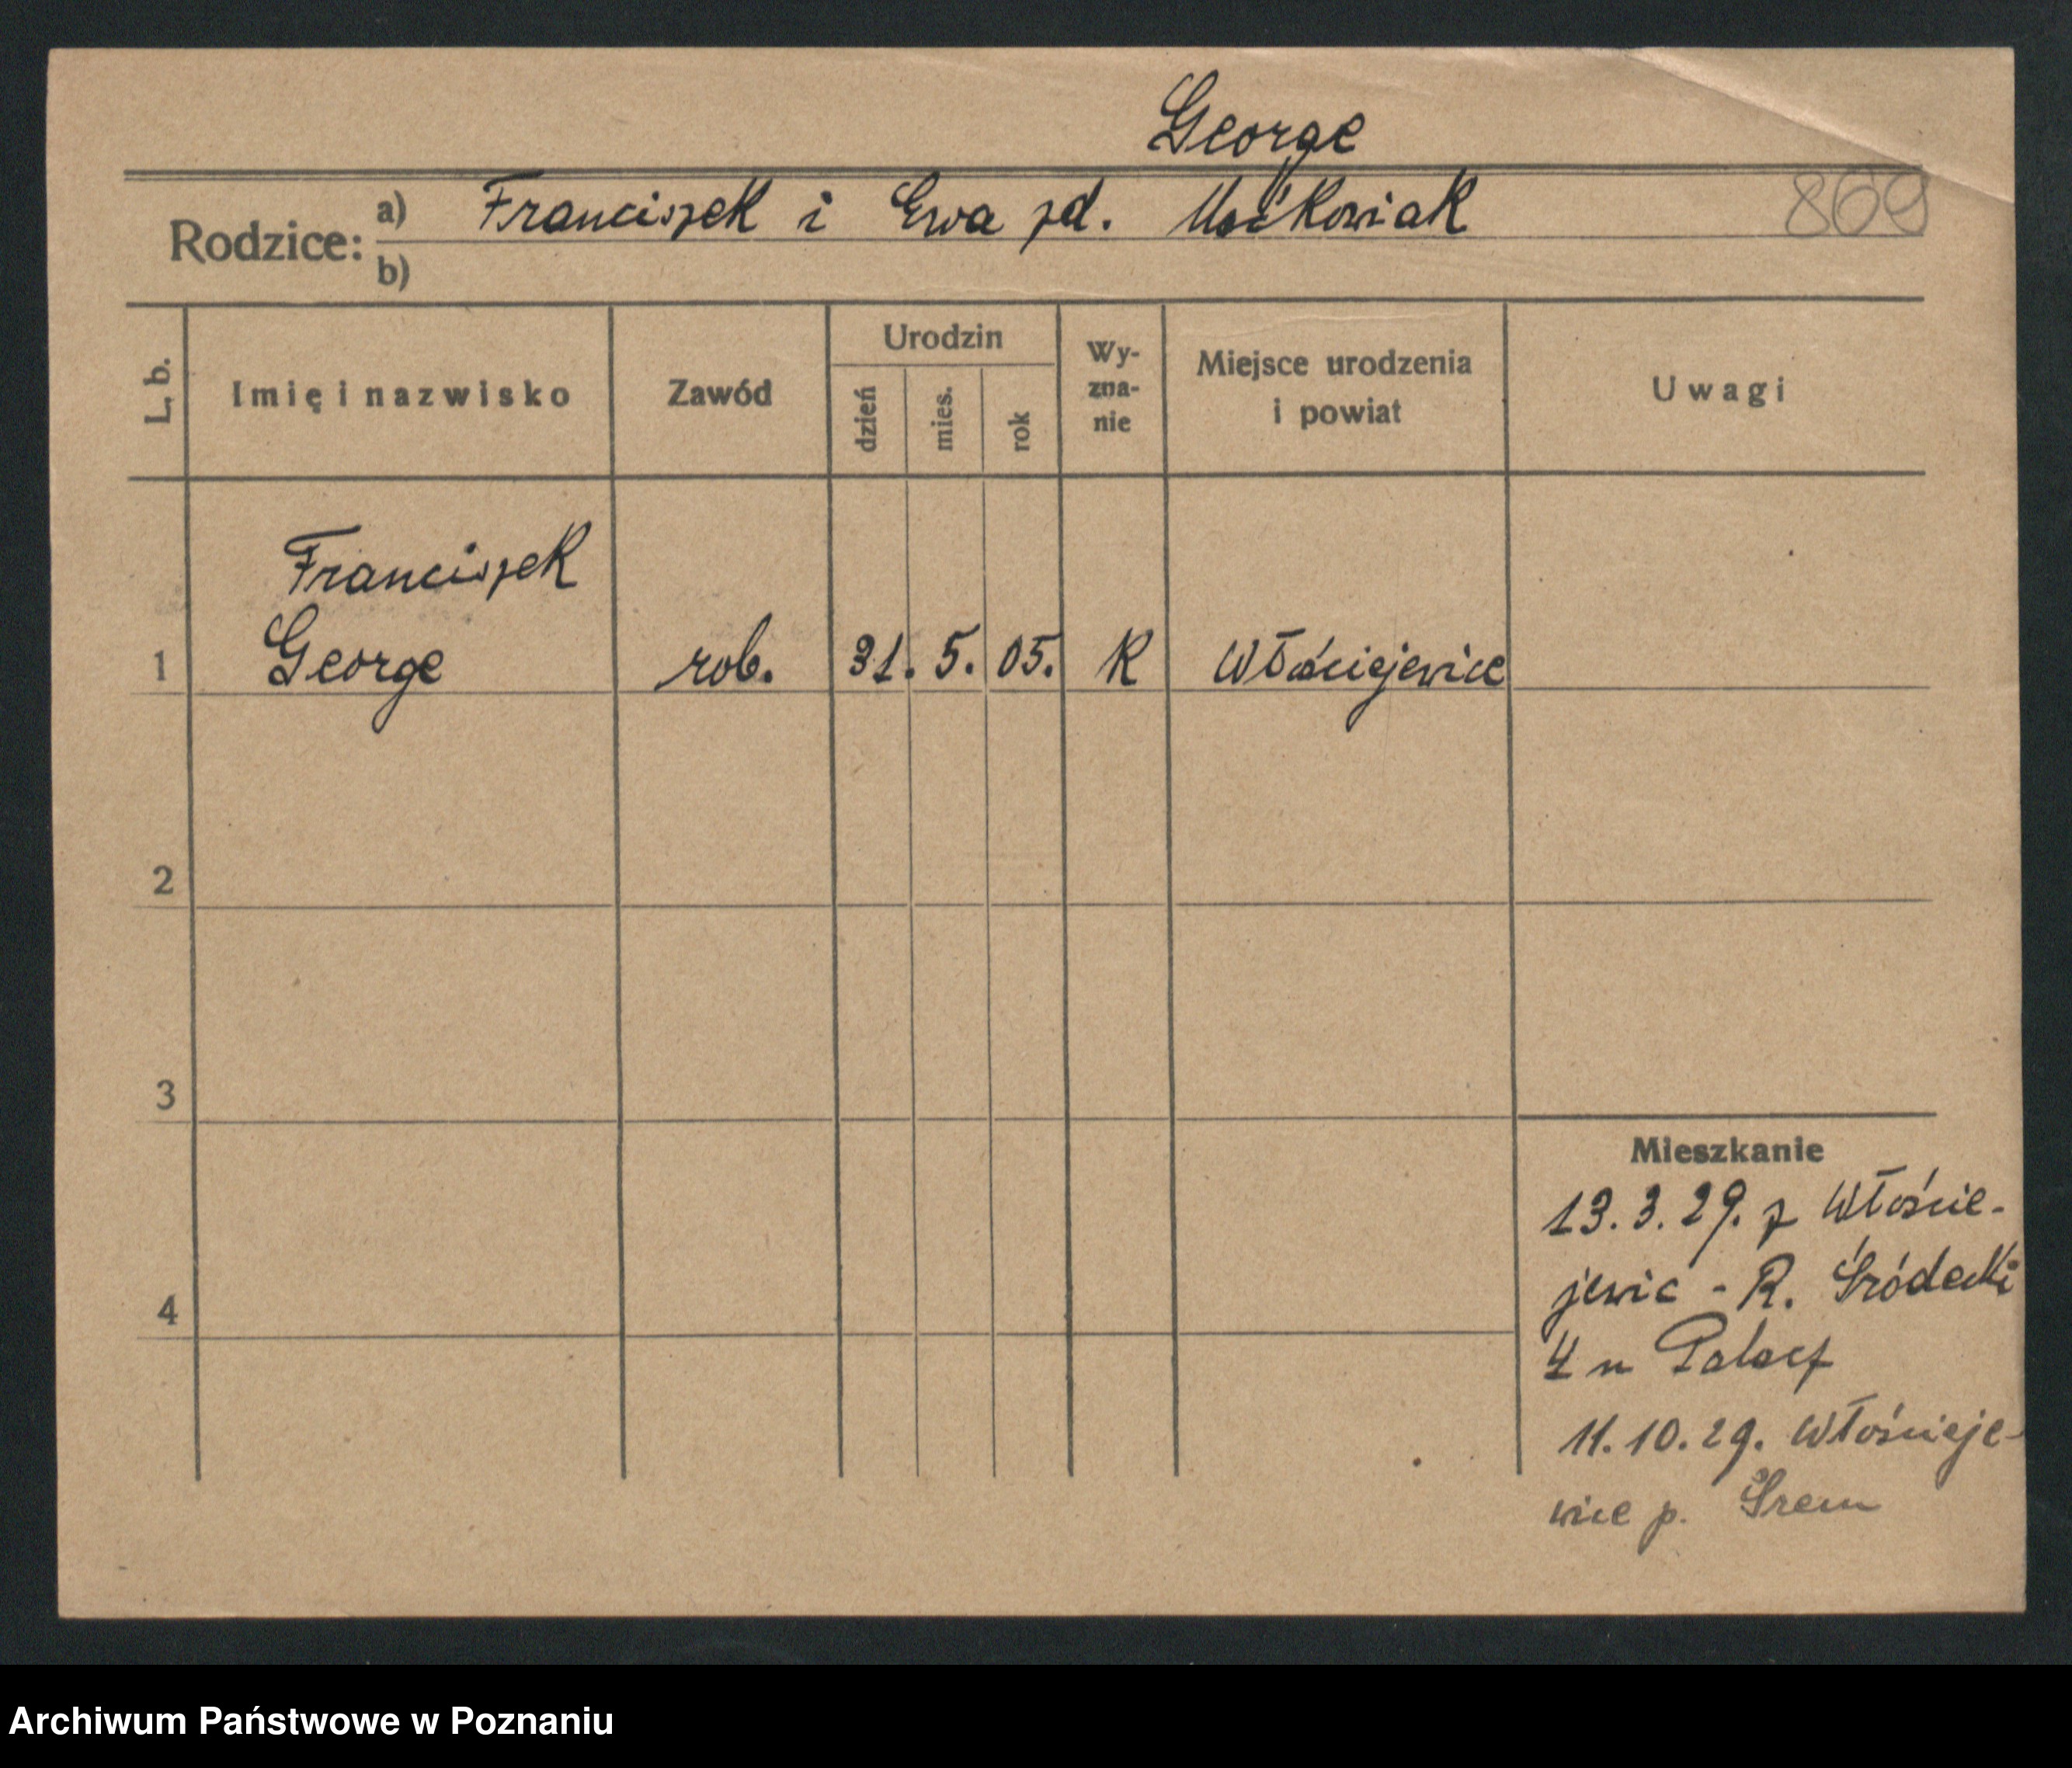 George
Rodzice: a) Franciszek i Ewa zd. Maćkowiak
869
b)
L. b. Imię i nazwisko Zawód Urodzin dzień mies. rok Wy-zna-nie Miejsce urodzenia i powiat Uwagi
Franciszek
1 George rob. 31. 5. 05. K Włościejewice
2
3
4
Mieszkanie
13.3.29. z Włoście-
jewic - R. Śródecki
4 u Palacz
11.10.29. Włościeje-
wice p. Śrem
Archiwum Państwowe w Poznaniu